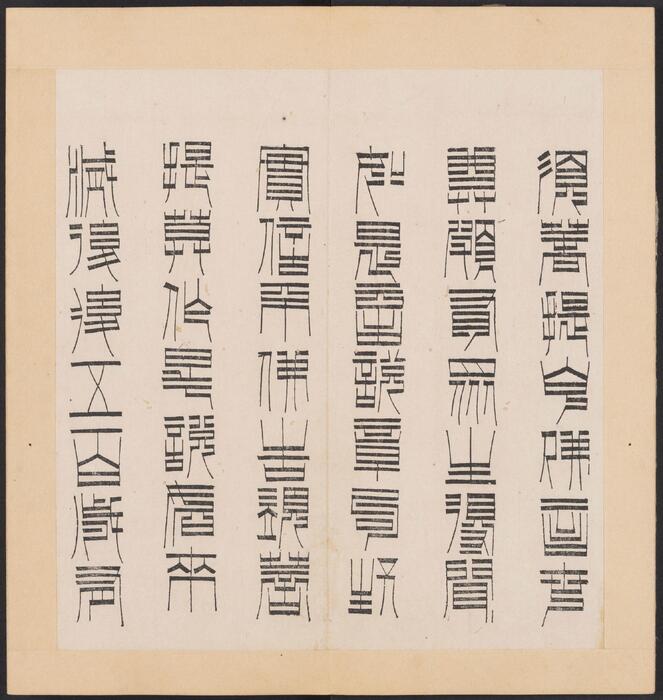 須菩提白佛言世
尊頗有眾生得聞
如是言說章句生
實信不佛告須菩
提莫作是說如來
滅後後五百歲有